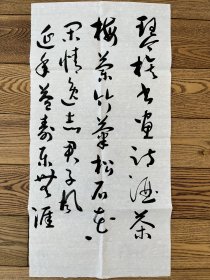 琴棋书画诗酒茶
梅兰竹菊松石花
闲情逸志君子风
延年益寿乐无涯